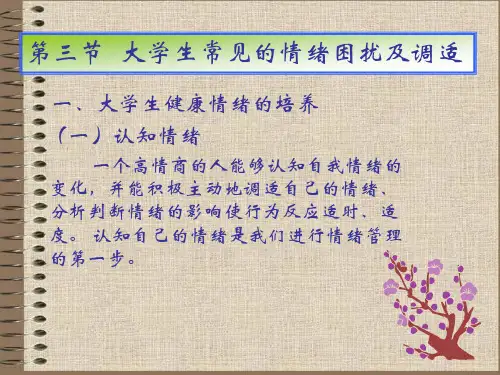 第三节 大学生常见的情绪困扰及调适
一、大学生健康情绪的培养
（一）认知情绪
一个高情商的人能够认知自我情绪的
变化，并能积极主动地调适自己的情绪、
分析判断情绪的影响使行为反应适时、适
度。 认知自己的情绪是我们进行情绪管理
的第一步。